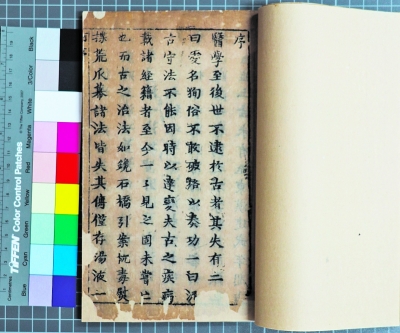 序
醫學至後世不逮於古者其失有二
曰愛名狥俗不敢破格以奏功一曰泥
古守法不能因時以達變夫古之疾病
載諸經籍者至今一一見之固未嘗亡
也而古之治法如鏡石橋引案杌毒熨
諸法皆失其傳僅存湯液一
TIFFEN Color Control Patches
Blue
Cyan
Green
Yellow
Red
Magenta
White
3/Color
Black
Centimetres